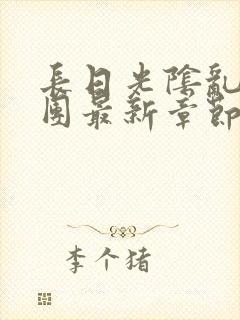 長日光陰亂
團最新章節
李个猪